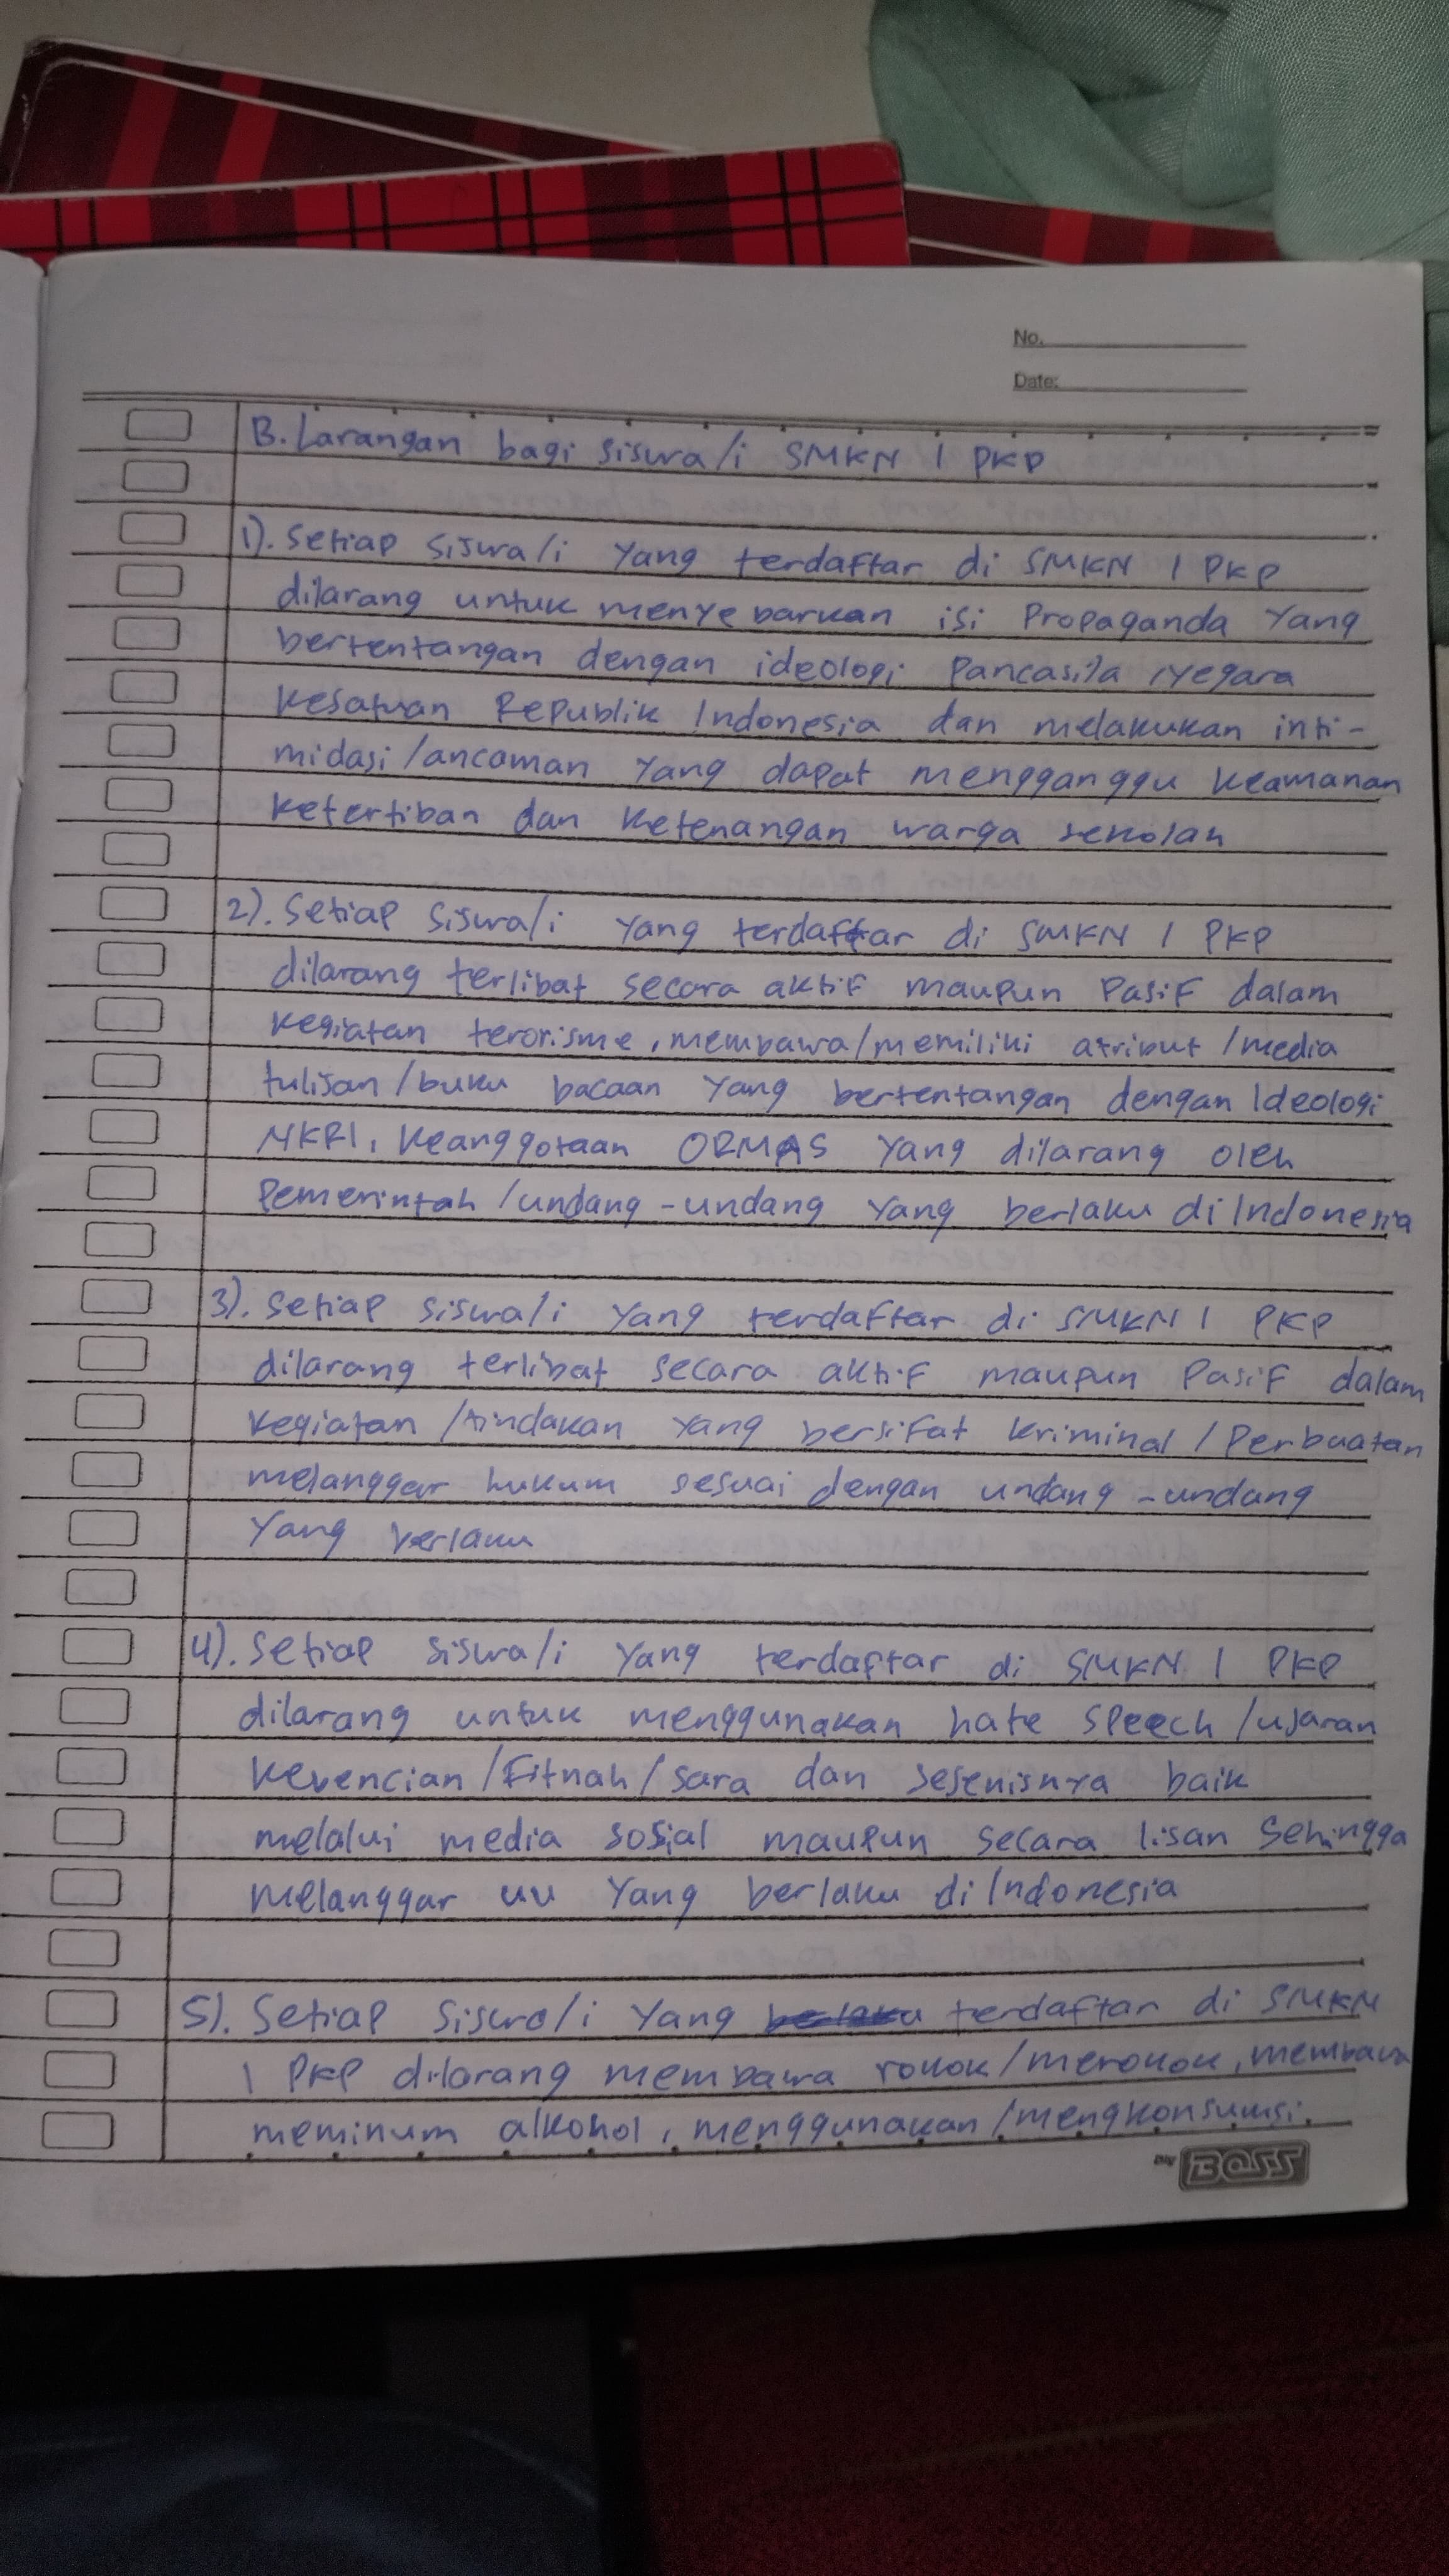 No.
Date:
B. Larangan bagi siswa/i SMKN 1 PKP
1). Setiap siswa/i yang terdaftar di SMKN 1 PKP
dilarang untuk menyebarkan isi Propaganda Yang
bertentangan dengan ideologi Pancasila, Negara
Kesatuan Republik Indonesia dan melakukan inti-
midasi/ancaman yang dapat mengganggu Keamanan
Ketertiban dan Ketenangan warga sekolah
2). Setiap siswa/i yang terdaftar di SMKN 1 PKP
dilarang terlibat secara aktif maupun Pasif dalam
kegiatan terorisme, membawa/memiliki atribut/media
tulisan/buku bacaan Yang bertentangan dengan Ideologi
NKRI, Keanggotaan ORMAS Yang dilarang oleh
Pemerintah/undang-undang Yang berlaku di Indonesia
3). Setiap siswa/i Yang terdaftar di SMKN 1 PKP
dilarang terlibat secara aktif maupun Pasif dalam
kegiatan/tindakan Yang bersifat Kriminal/Perbuatan
melanggar hukum sesuai dengan undang-undang
Yang berlaku
4). Setiap siswa/i Yang terdaftar di SMKN 1 PKP
dilarang untuk menggunakan hate speech/ujaran
Kebencian/Fitnah/sara dan sejenisnya baik
melalui media sosial maupun secara lisan sehingga
melanggar uu Yang berlaku di Indonesia
5). Setiap siswa/i Yang berlaku terdaftar di SMKN
1 PKP dilarang membawa rokok/merokok, membawa
meminum alkohol, menggunakan/mengkonsumsi.
by BOSS